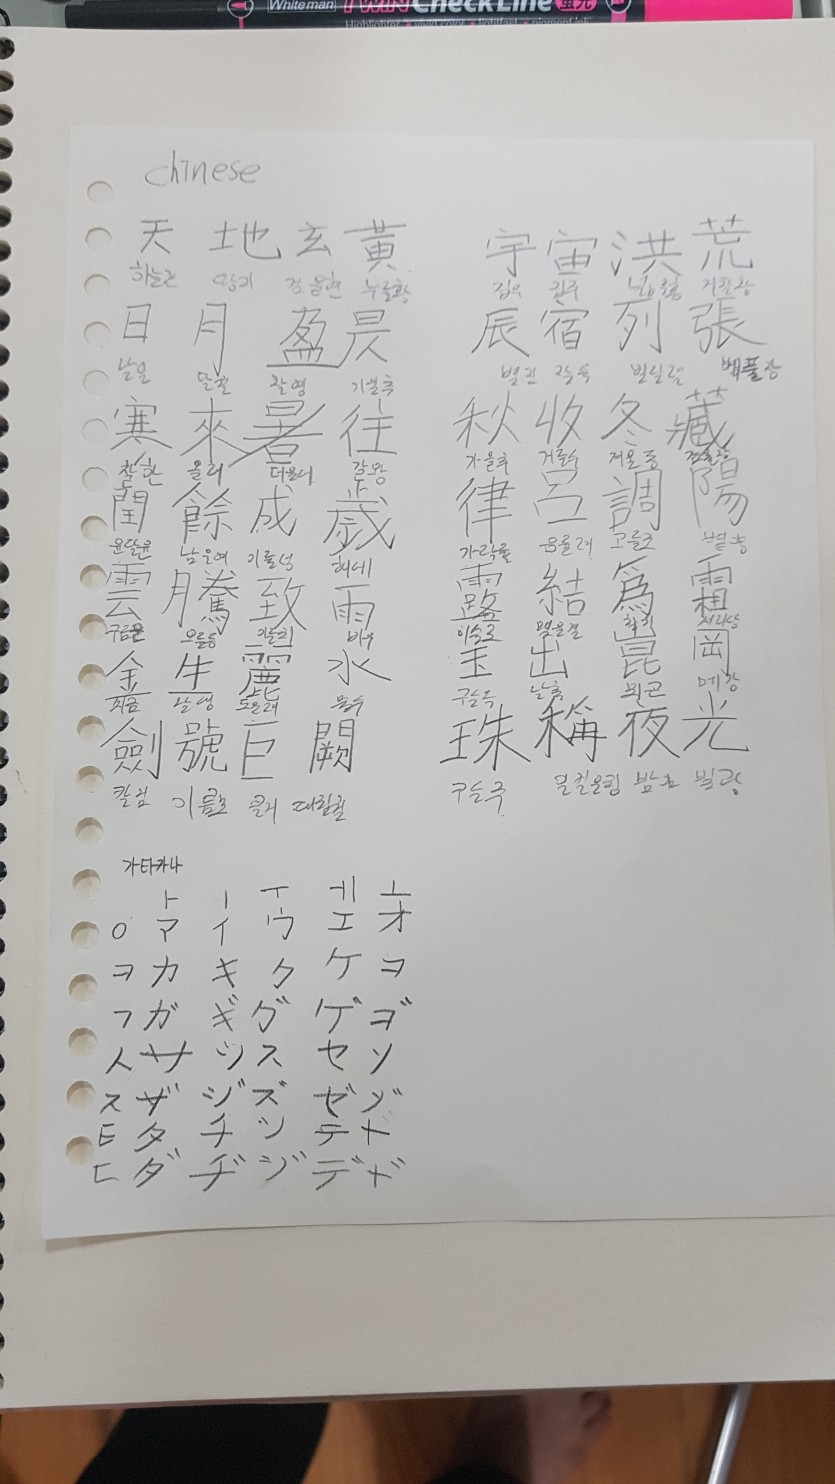 Whiteman TWIN CheckLine 형광
Highlighter
chinese
天 地 玄 黃 宇 宙 洪 荒
하늘천 땅지 검을현 누를황 집우 집주 넓을홍 거칠황
日 月 盈 昃 辰 宿 列 張
날일 달월 찰영 기울측 별진 잘숙 벌릴렬 베풀장
寒 來 暑 往 秋 收 冬 藏
찰한 올래 더울서 갈왕 가을추 거둘수 겨울동
閏 餘 成 歲 律 呂 調 陽
윤달윤 남을여 이룰성 해세 가락률 음률려 고를조 볕양
雲 騰 致 雨 露 結 爲 霜
구름운 오를등 이를치 비우 이슬로 맺을결 서리상
金 生 麗 水 玉 出 崑 岡
쇠금 날생 물수 구슬옥 날출 뫼곤 메강
劍 號 巨 闕 珠 稱 夜 光
칼검 이름호 클거 대궐궐 구슬주 일컬을칭 밤야 빛광
가타카나
ㅏ ㅣ ㅜ ㅔ ㅗ
ㅇ ア イ ウ エ オ
ㅋ カ キ ク ケ コ
ㄱ ガ ギ グ ゲ ゴ
ㅅ サ シ ス セ ソ
ㅈ ザ ジ ズ ゼ ゾ
ㅌ タ チ ツ テ ト
ㄷ ダ ヂ ヅ デ ド